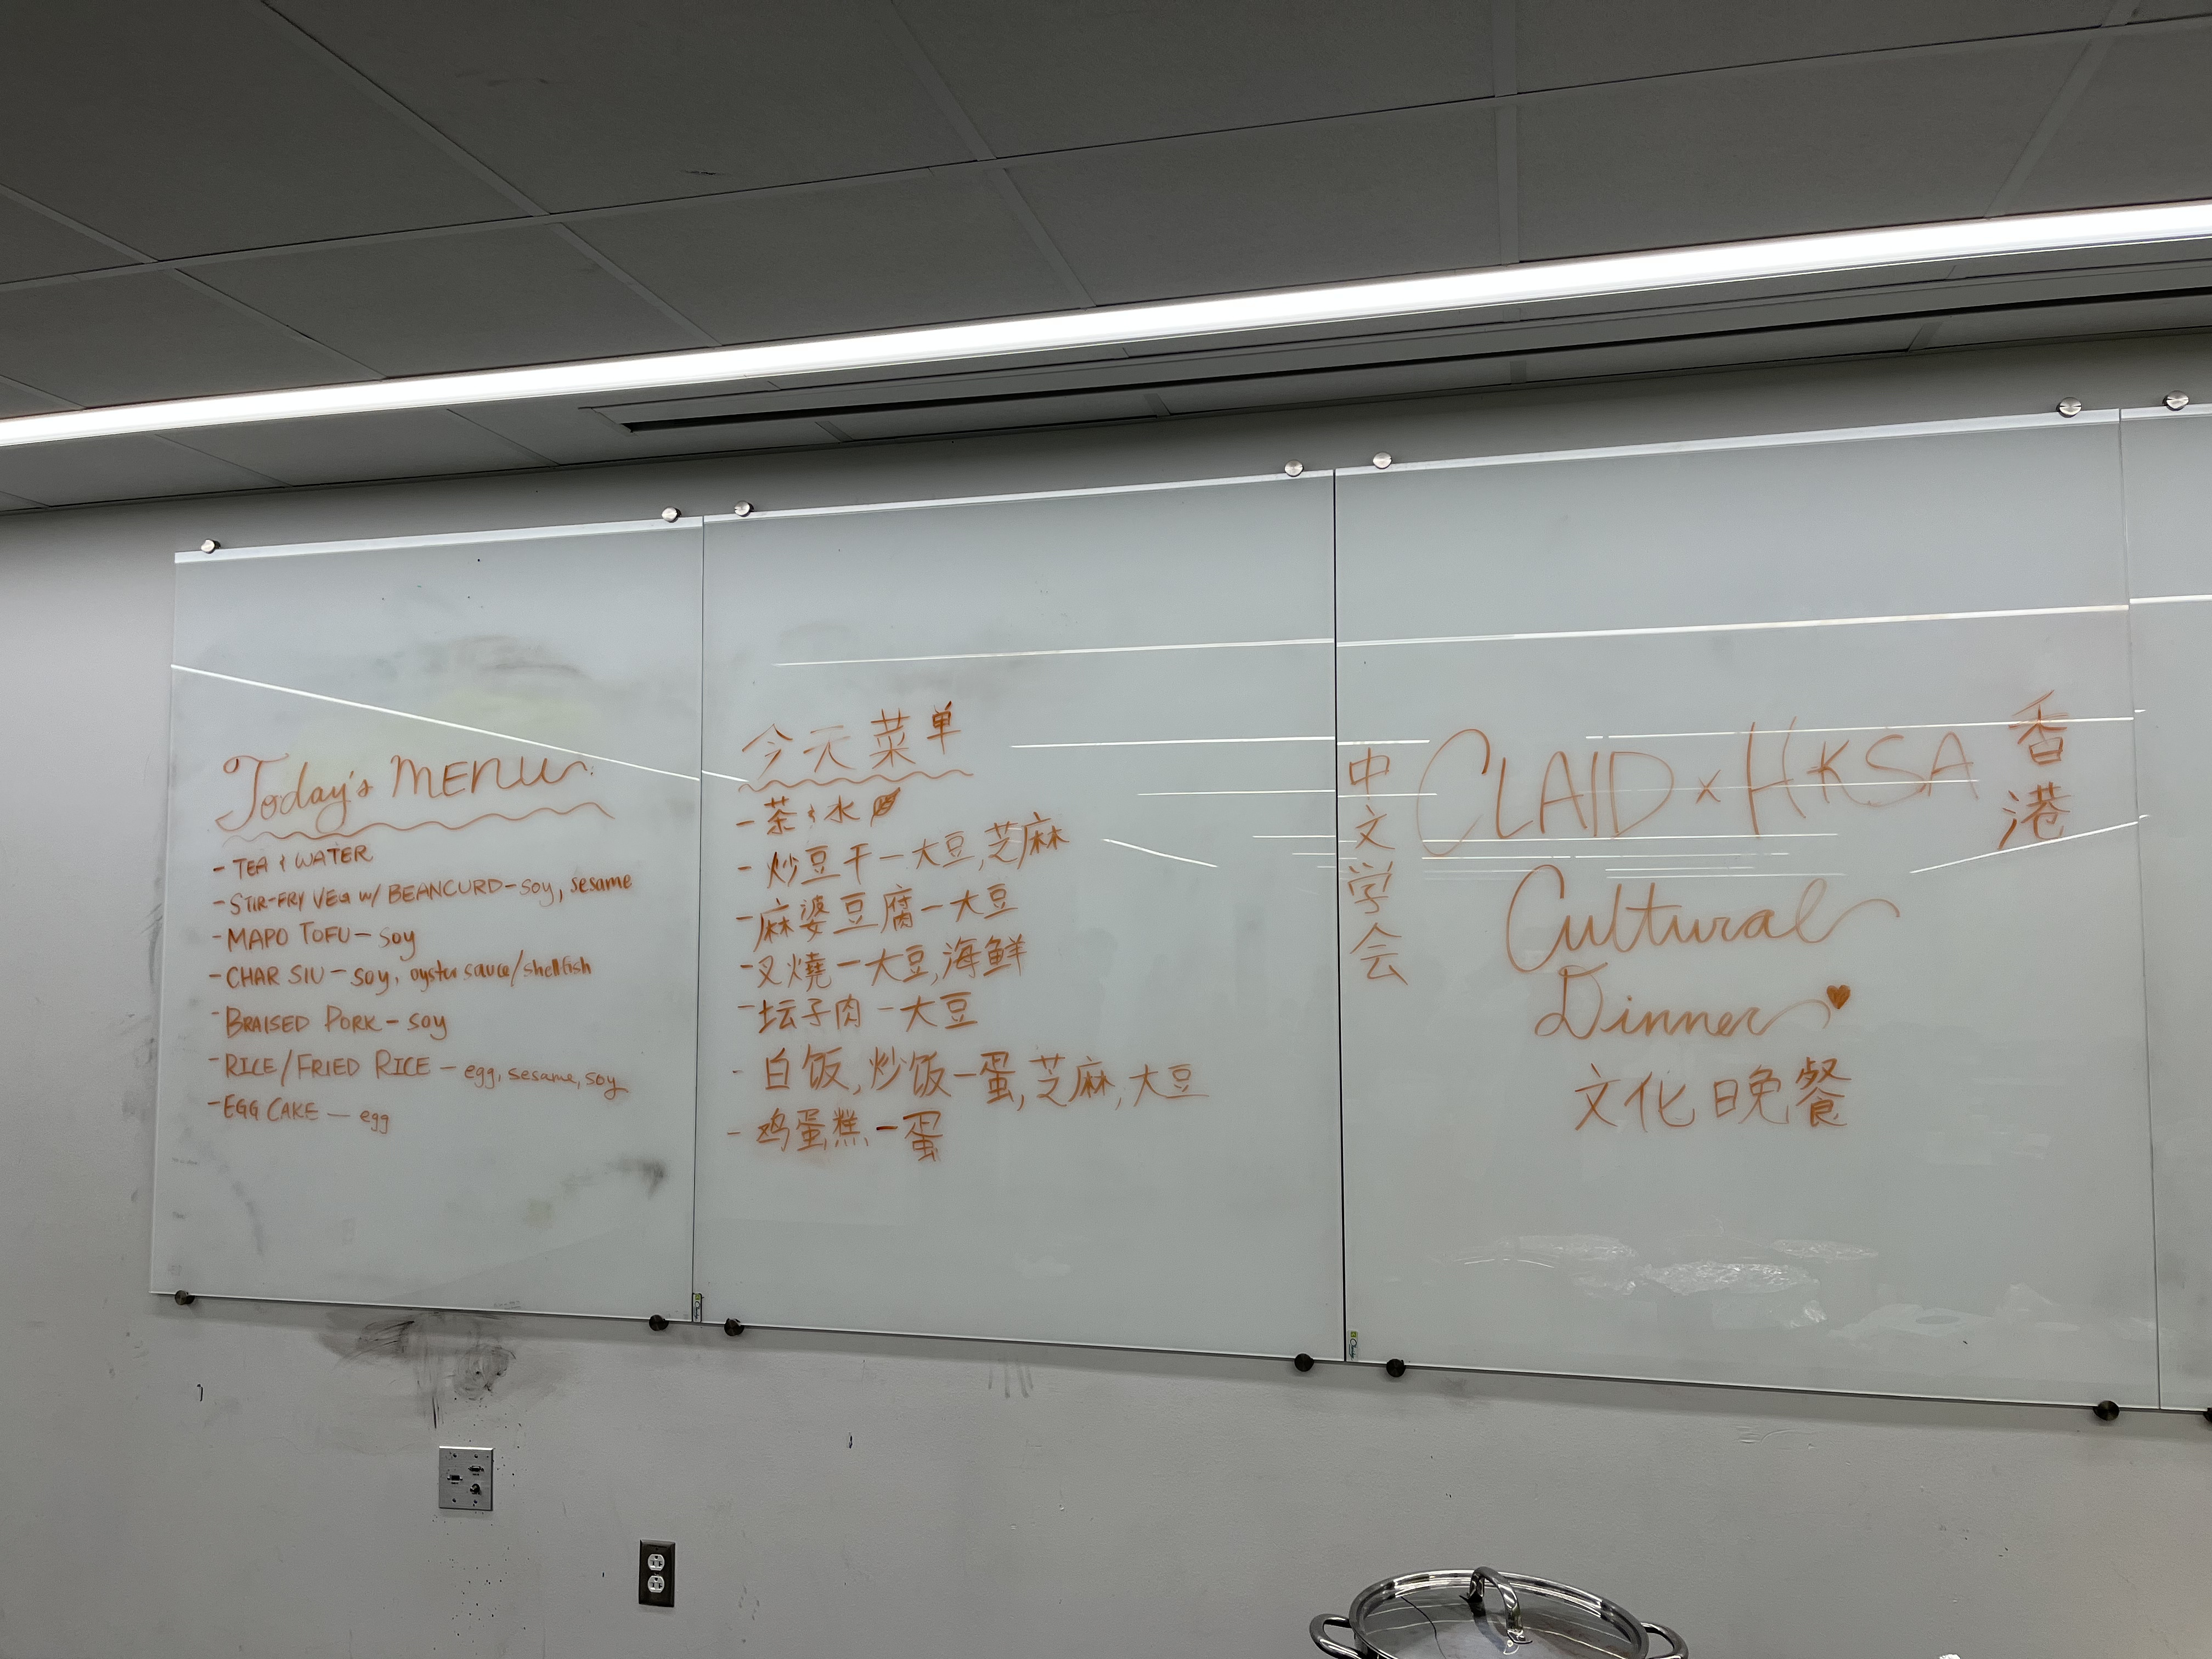 Today's MENU
- TEA & WATER
- STIR-FRY VEG W/ BEANCURD - soy, sesame
- MAPO TOFU - soy
- CHAR SIU - soy, oyster sauce/shellfish
- BRAISED PORK - soy
- RICE/FRIED RICE - egg, sesame, soy
- EGG CAKE - egg
今天菜单
- 茶 & 水
- 炒豆干 - 大豆, 芝麻
- 麻婆豆腐 - 大豆
- 叉燒 - 大豆, 海鲜
- 坛子肉 - 大豆
- 白饭, 炒饭 - 蛋, 芝麻, 大豆
- 鸡蛋糕 - 蛋
中文学会
CLAID x HKSA
香港
Cultural
Dinner ♥
文化晚餐